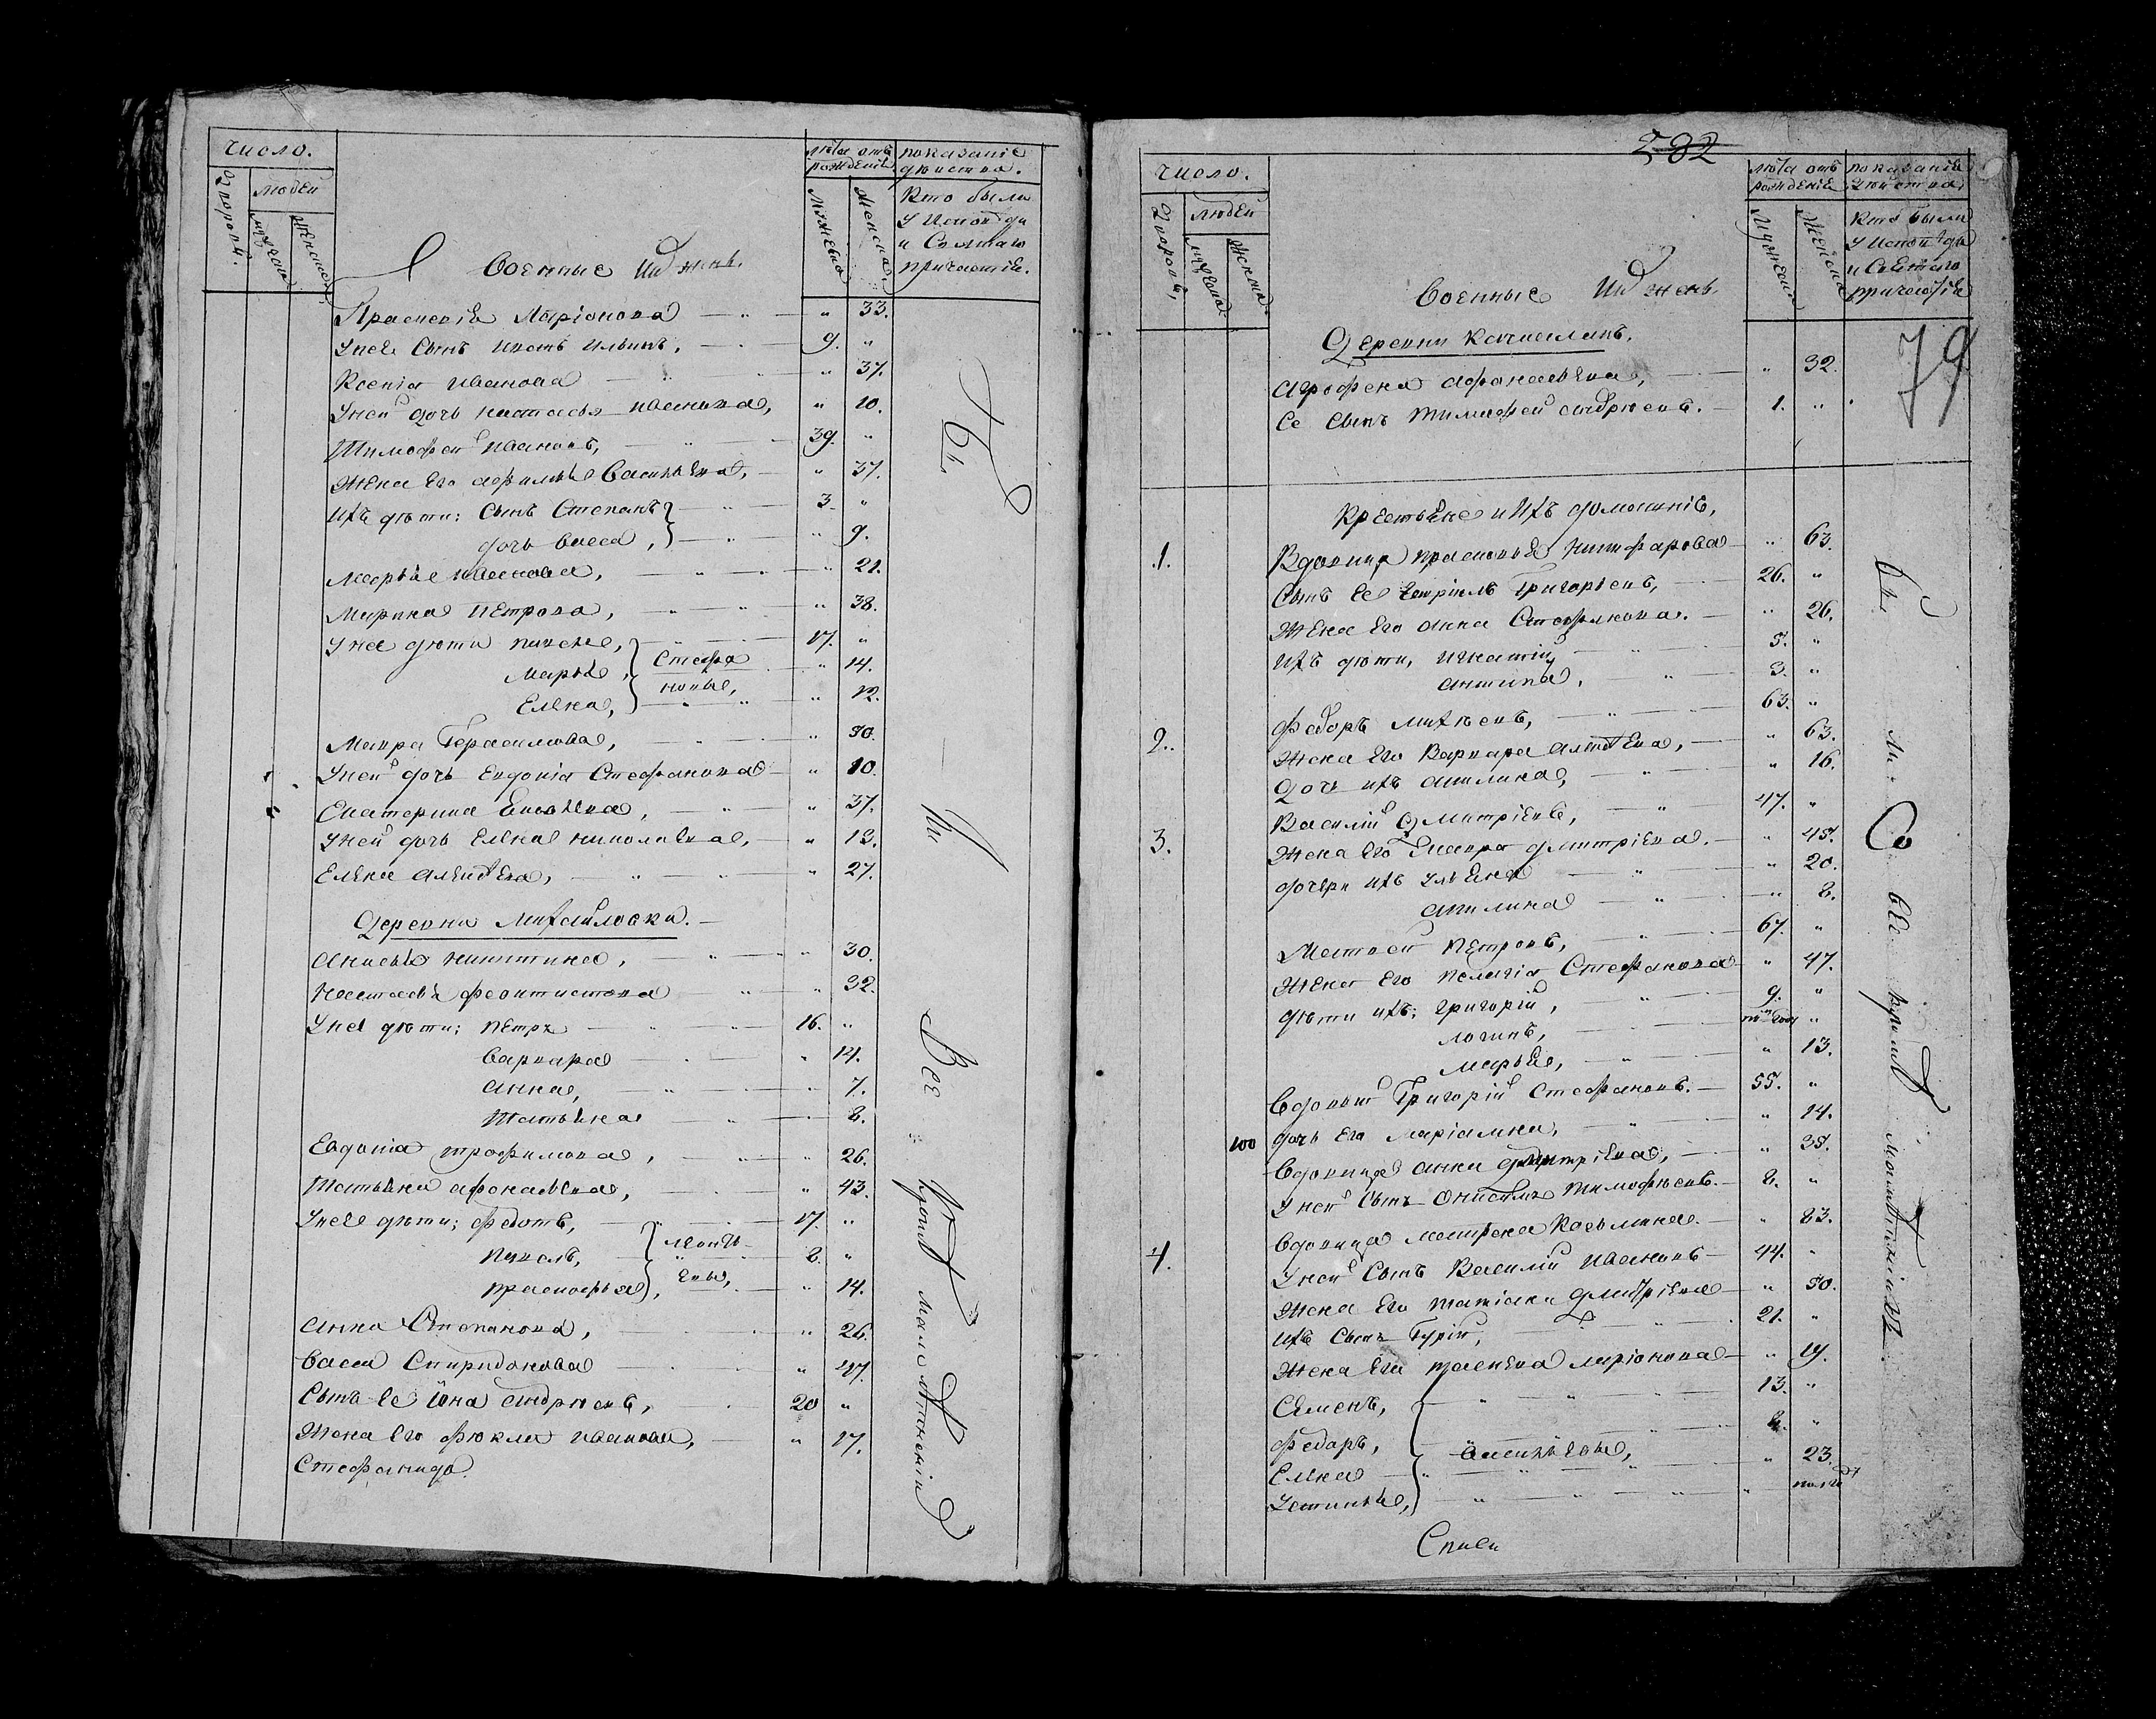 число.
людей
дворовъ.
мужска
женска
лѣта отъ рожденія
мужеска
женска
показаніе
дѣйства.
Кто былъ
У Исповѣди
и Святаго
причастія.
Военные ихъ жены.
Прасковія Ларіонова 33.
У нее Сынъ Ипатъ Ильинъ, 9.
Ксенія Иванова 37.
У ней дочь Настасья Иванова, 10.
Тимофей Ивановъ, 39.
Жена Его Афимья Васильева, 37.
Ихъ дѣти: Сынъ Степанъ 3.
дочь Васса, 9.
Марѳа Иванова, 21.
Марина Петрова, 38.
У нее дѣти 17.
Марья, Стефа 14.
Елена, новы, 12.
Мавра Герасимова, 50.
У ней дочь Евдокія Стефанова 10.
Екатерина 37.
У ней дочь Елена Николаева, 13.
Елена Алексѣева, 27.
Деревни Михайловки.
Анисья Никитина, 30.
Настасья Феоктистова 32.
У нее дѣти; Петръ 16.
Варвара 14.
Анна, 7.
Татьяна 8.
Евдокія Трофимова, 26.
Татьяна Афонасьева, 43.
У нее дѣти; Федотъ, 17.
Павелъ, Леонть 8.
Прасковья, евы, 14.
Анна Степанова, 26.
Васса Спиридонова 47.
Сынъ Ее Іона Андрѣевъ, 20
Жена Его Фекла Иванова, 17.
Стефанида.
Бы ли Все кромѣ малолѣтнихъ
282
число.
людей
дворовъ,
мужска
женска
лѣта отъ рожденія
мужеска
женска
показаніе
дѣйства
Кто былъ
У Исповѣди
и Святаго
причастія
79
Военные Ихъ жены.
Деревни
Агрофена Афанасьева, 32.
Ее Сынъ Тимофей Андрѣевъ. 1.
Крестьяне и Ихъ домашніе,
.1. Вдовица Прасковья Никифарова 63.
Сынъ Ее Григорьевъ, 26.
Жена Его Анна Стефанова. 26.
Ихъ дѣти, Игнатій 5.
Антипа, 3.
2. Федоръ Михѣевъ, 63.
Жена Его Варвара Алексѣева, 63.
Дочь ихъ Акилина, 16.
3. Василій Дмитріевъ, 47.
Жена Его Мавра Дмитріева. 45.
дочери ихъ Ульяна 20.
Акилина 8.
Матвей Петровъ, 67.
Жена Его Пелагія Стефанова 47.
дѣти ихъ; Григорій, 9.
Логинъ,
Марья, 13.
Вдовый Григорій Стефановъ. 55.
100 дочь Его Маріамна, 14.
Вдовица Анна Дмитріева, 35.
У ней Сынъ Онисимъ Тимофѣевъ. 8.
4. Вдовица Матрена Козьмина. 83.
У ней Сынъ Василій Ивановъ 44.
Жена Его Татіана Дмитріева 50.
Ихъ Сынъ Гурій, 21.
Жена Его Ларіонова 19.
Семенъ, 13.
Федаръ, 8.
Елена Васильевы, 23.
Устинья,
Списи
бы ли Со все кромѣ малолѣтнихъ